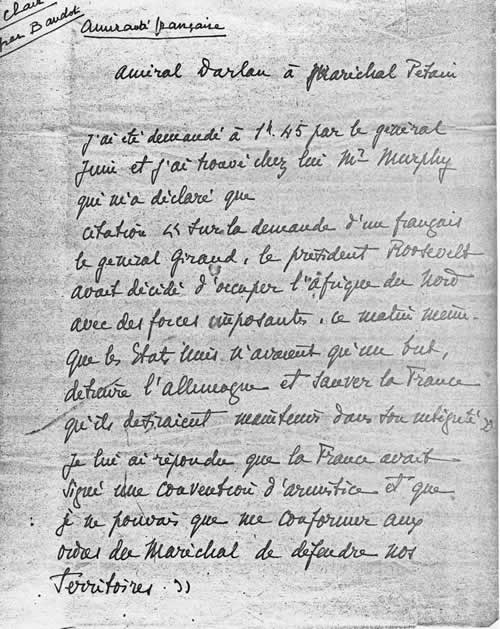 Clair
par Baudot
Amirauté française
Amiral Darlan à Maréchal Pétain
J'ai été demandé à 1h.45 par le général
Juin et j'ai trouvé chez lui Mr Murphy
qui m'a déclaré que
citation "Sur la demande d'un français
le général Giraud, le président Roosevelt
avait décidé d'occuper l'Afrique du Nord
avec des forces imposantes, ce matin même.
que les Etats Unis n'avaient qu'un but,
détruire l'allemagne et sauver la France
qu'ils désiraient maintenir dans son intégrité"
Je lui ai répondu que la France avait
signé une convention d'armistice et que
je ne pouvais que me conformer aux
ordres du Maréchal de défendre nos
Territoires. ))